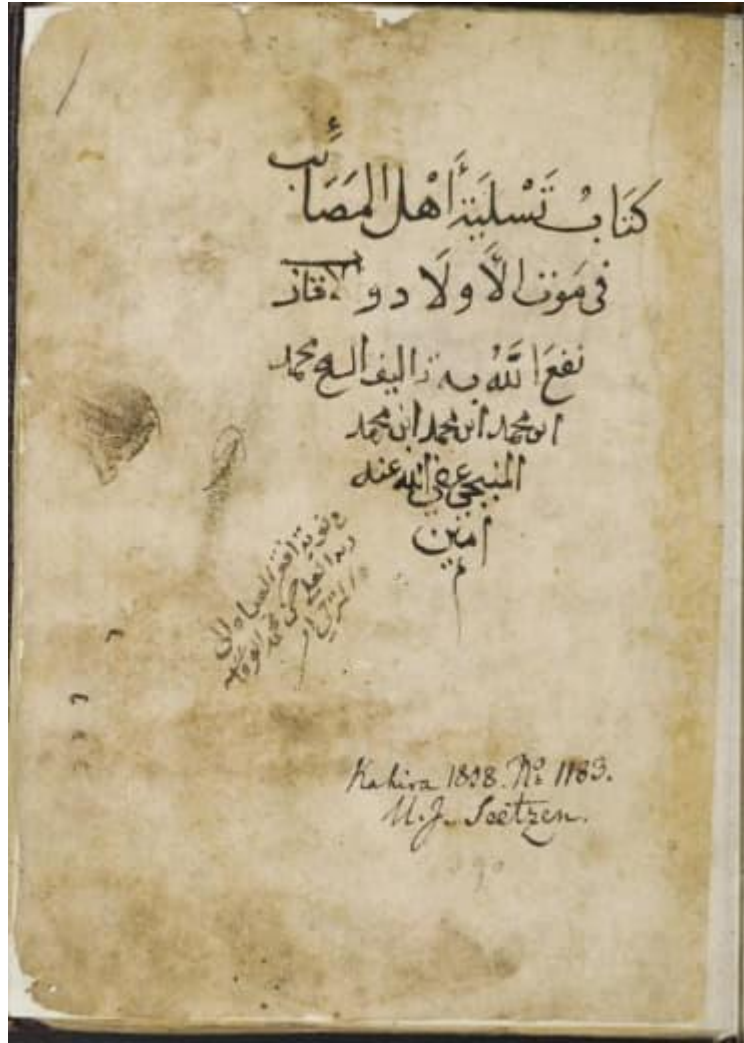 كتابُ تَسْليَة أَهْل المَصَائب
في مَوت الأَولَاد والاقارب
نفعَ اللهُ به تاليف الشيخ محمد
ابن محمد ابن محمد ابن محمد
المنبجي عفي الله عنه
امين
Kahira 1808. No 1183.
U. J. Seetzen.